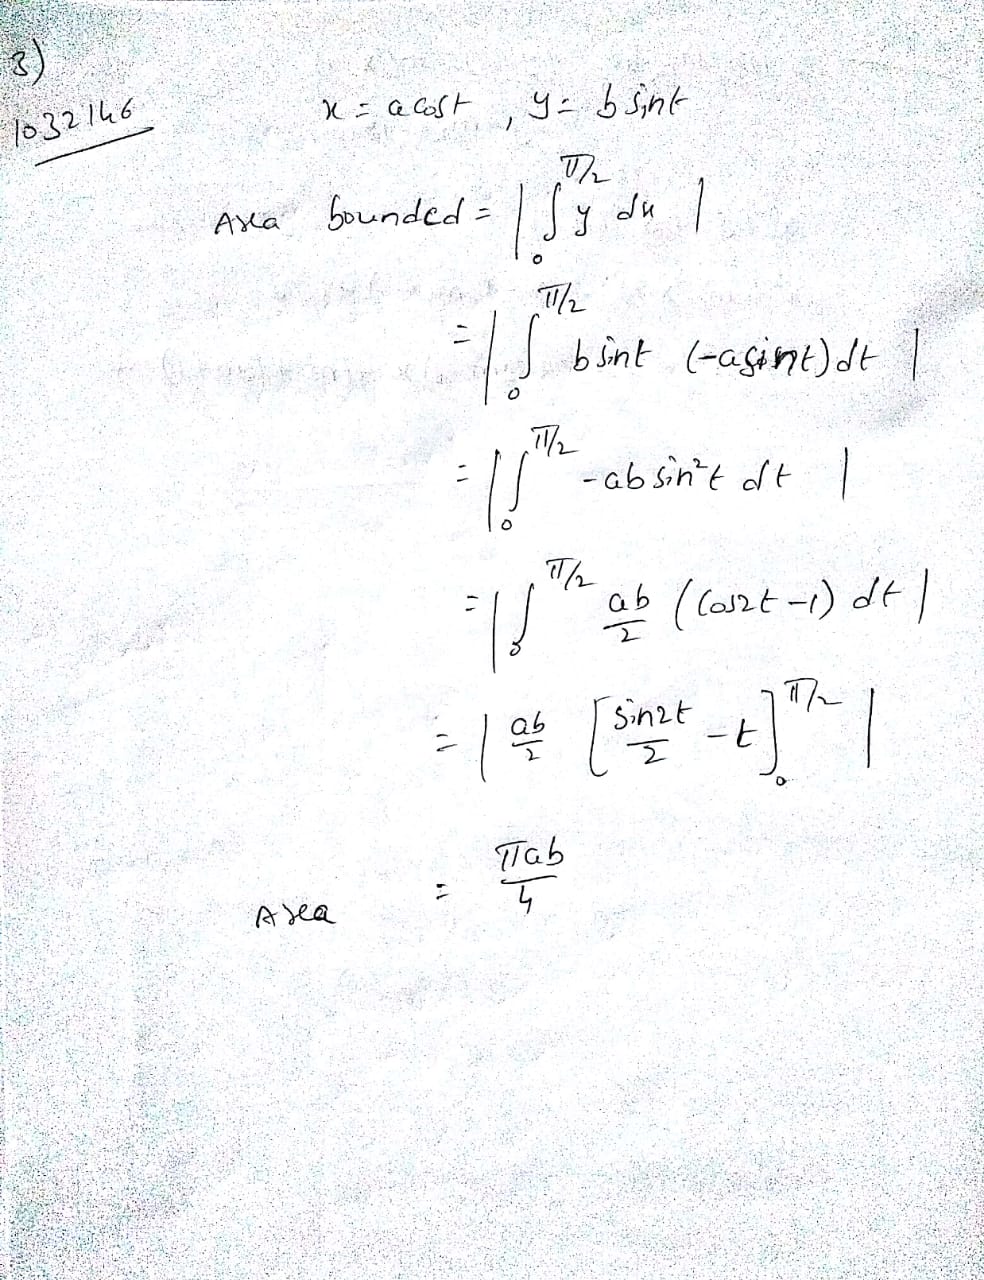 3)
1032146
x = a cost , y = b sint
Area bounded = | ∫₀^π/2 y dx |
= | ∫₀^π/2 b sint (-a sint) dt |
= | ∫₀^π/2 -ab sin²t dt |
= | ∫₀^π/2 ab/2 (cos2t -1) dt |
= | ab/2 [ sin2t/2 - t ]₀^π/2 |
Area = πab/4